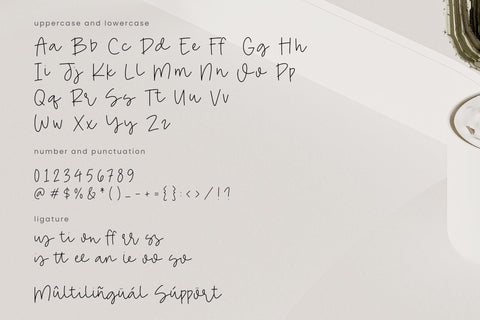 uppercase and lowercase
Aa Bb Cc Dd Ee Ff Gg Hh
Ii Jj Kk Ll Mm Nn Oo Pp
Qq Rr Ss Tt Uu Vv
Ww Xx Yy Zz
number and punctuation
0123456789
@#$%&*()_-+={}:<>/!?
ligature
us ti on ff rr ss
is tt ee an ie oo so
Mûltiliñgüál Súppört